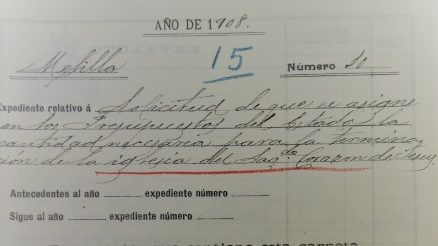 AÑO DE 1908.
15
Melilla
Número 10
Expediente relativo á Solicitud de que se asigne
en los Presupuestos del Estado la
cantidad necesaria para la termina-
ción de la iglesia del Sagdo Corazon de Jesus
Antecedentes al año expediente número
Sigue al año expediente número